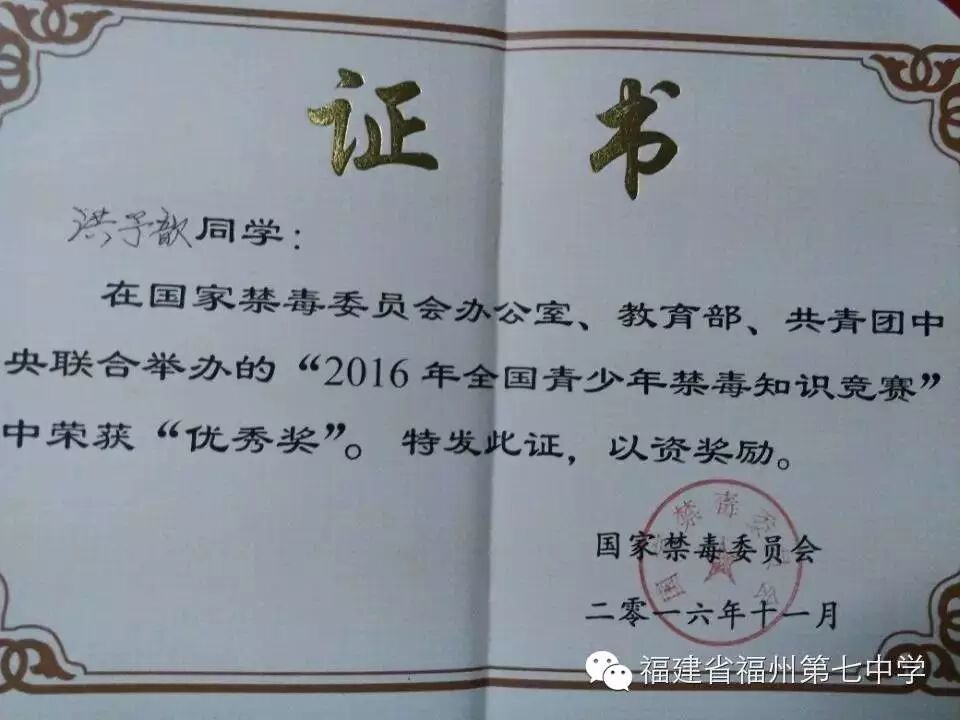 证书
洪予歆同学：
在国家禁毒委员会办公室、教育部、共青团中
央联合举办的“2016年全国青少年禁毒知识竞赛”
中荣获“优秀奖”。特发此证，以资奖励。
国家禁毒委员会
国家禁毒委员会
二零一六年十一月
福建省福州第七中学